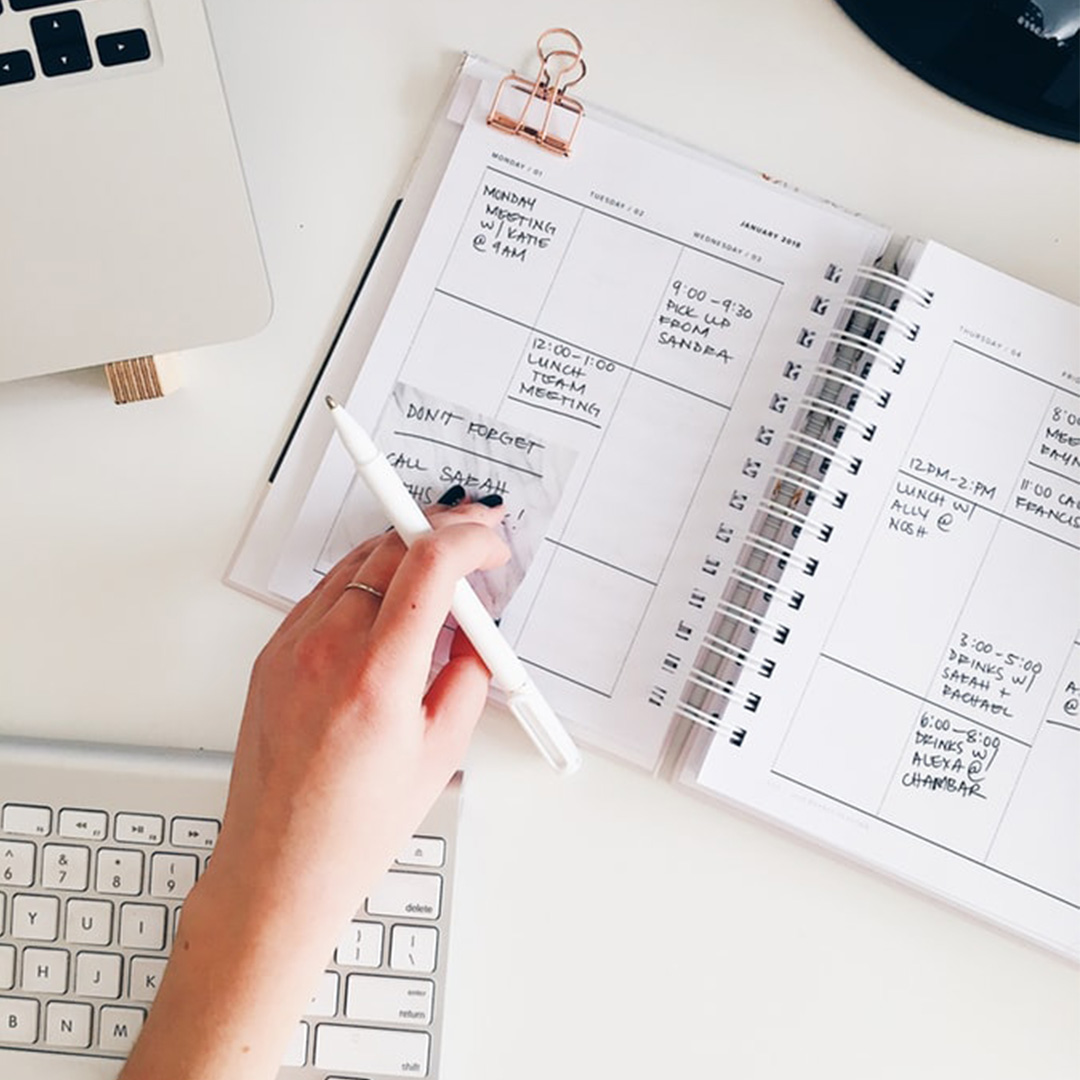 MONDAY / 01
MONDAY
MEETING
W/ KATIE
@ 9AM
TUESDAY / 02
12:00-1:00
LUNCH
TEAM
MEETING
JANUARY 2018
WEDNESDAY / 03
9:00-9:30
PICK UP
FROM
SANDRA
DON'T FORGET
CALL SARAH
THIS
!
THURSDAY / 04
12PM-2:PM
LUNCH W/
ALLY @
NOSH
8:0
MEE
11:00 CA
FRANCIS
3:00-5:00
DRINKS W/
SARAH +
RACHAEL
6:00-8:00
DRINKS W/
ALEXA @
CHAMBAR
A
@
F6
F7
F8
^
6
&
7
*
8
(
9
Y
U
I
H
J
K
B
N
M
delete
}
]
|
\
enter
return
shift